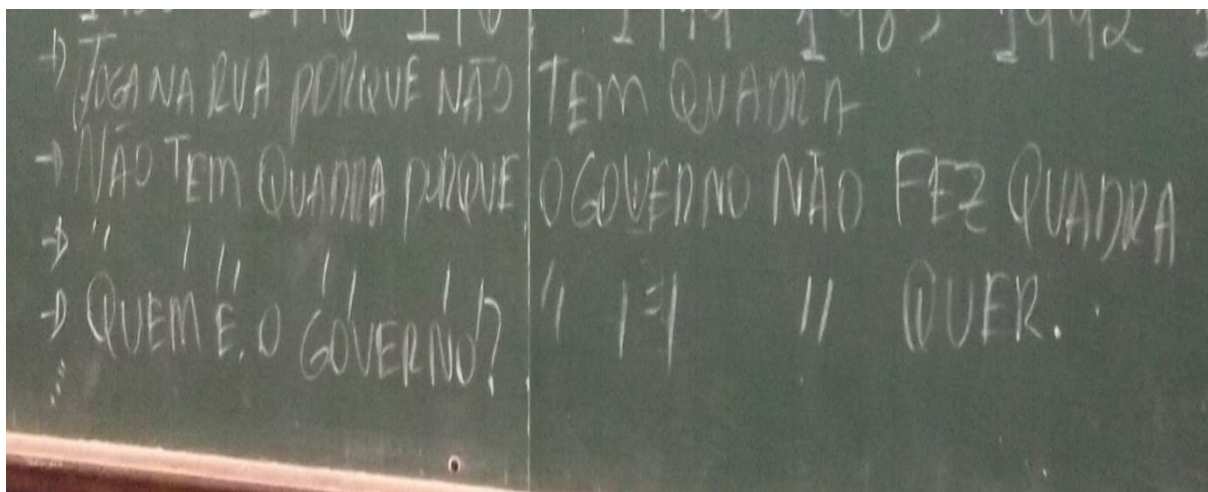 1992
→ JOGA NA RUA PORQUE NÃO TEM QUADRA
→ NÃO TEM QUADRA PORQUE O GOVERNO NÃO FEZ QUADRA
→ " " " " " " " QUER.
→ QUEM É O GOVERNO?